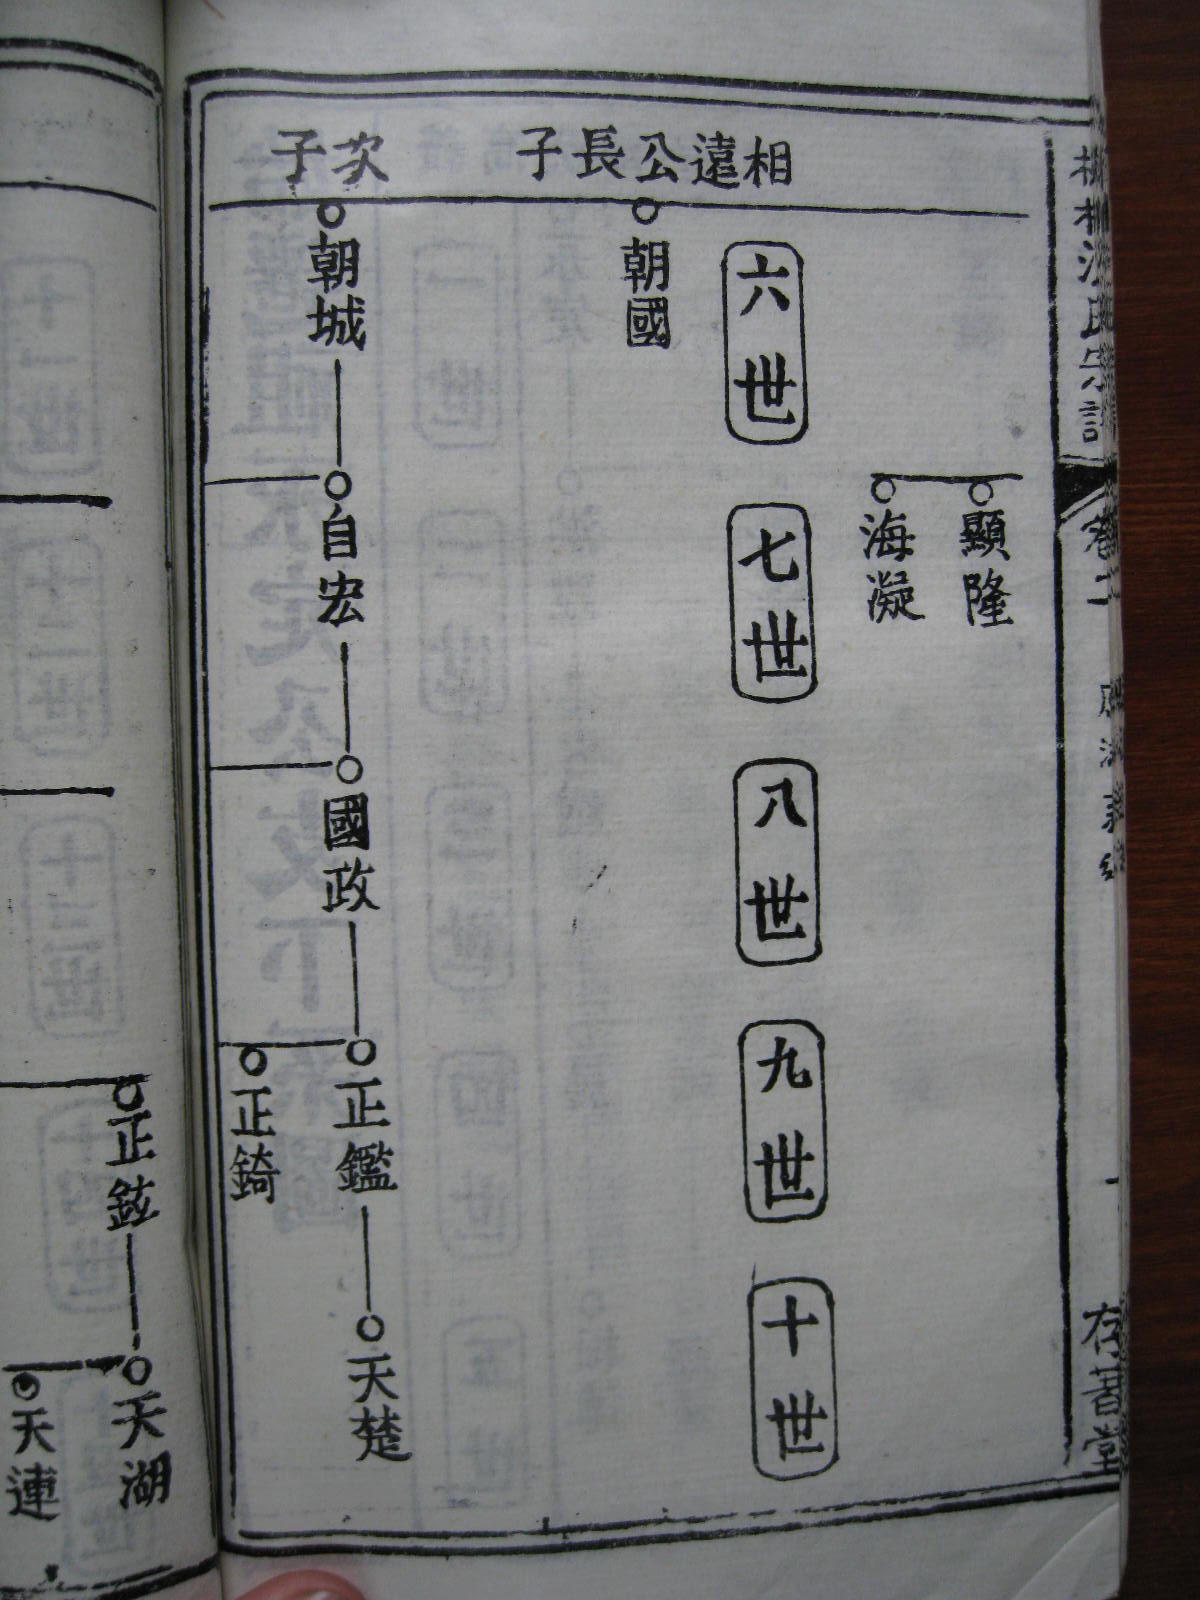 顯隆
海凝
六世
七世
八世
九世
十世
相遠公長子
朝國
次子
朝城
自宏
國政
正鑑
天楚
正錡
正鉉
天湖
天連
卷二
存著堂